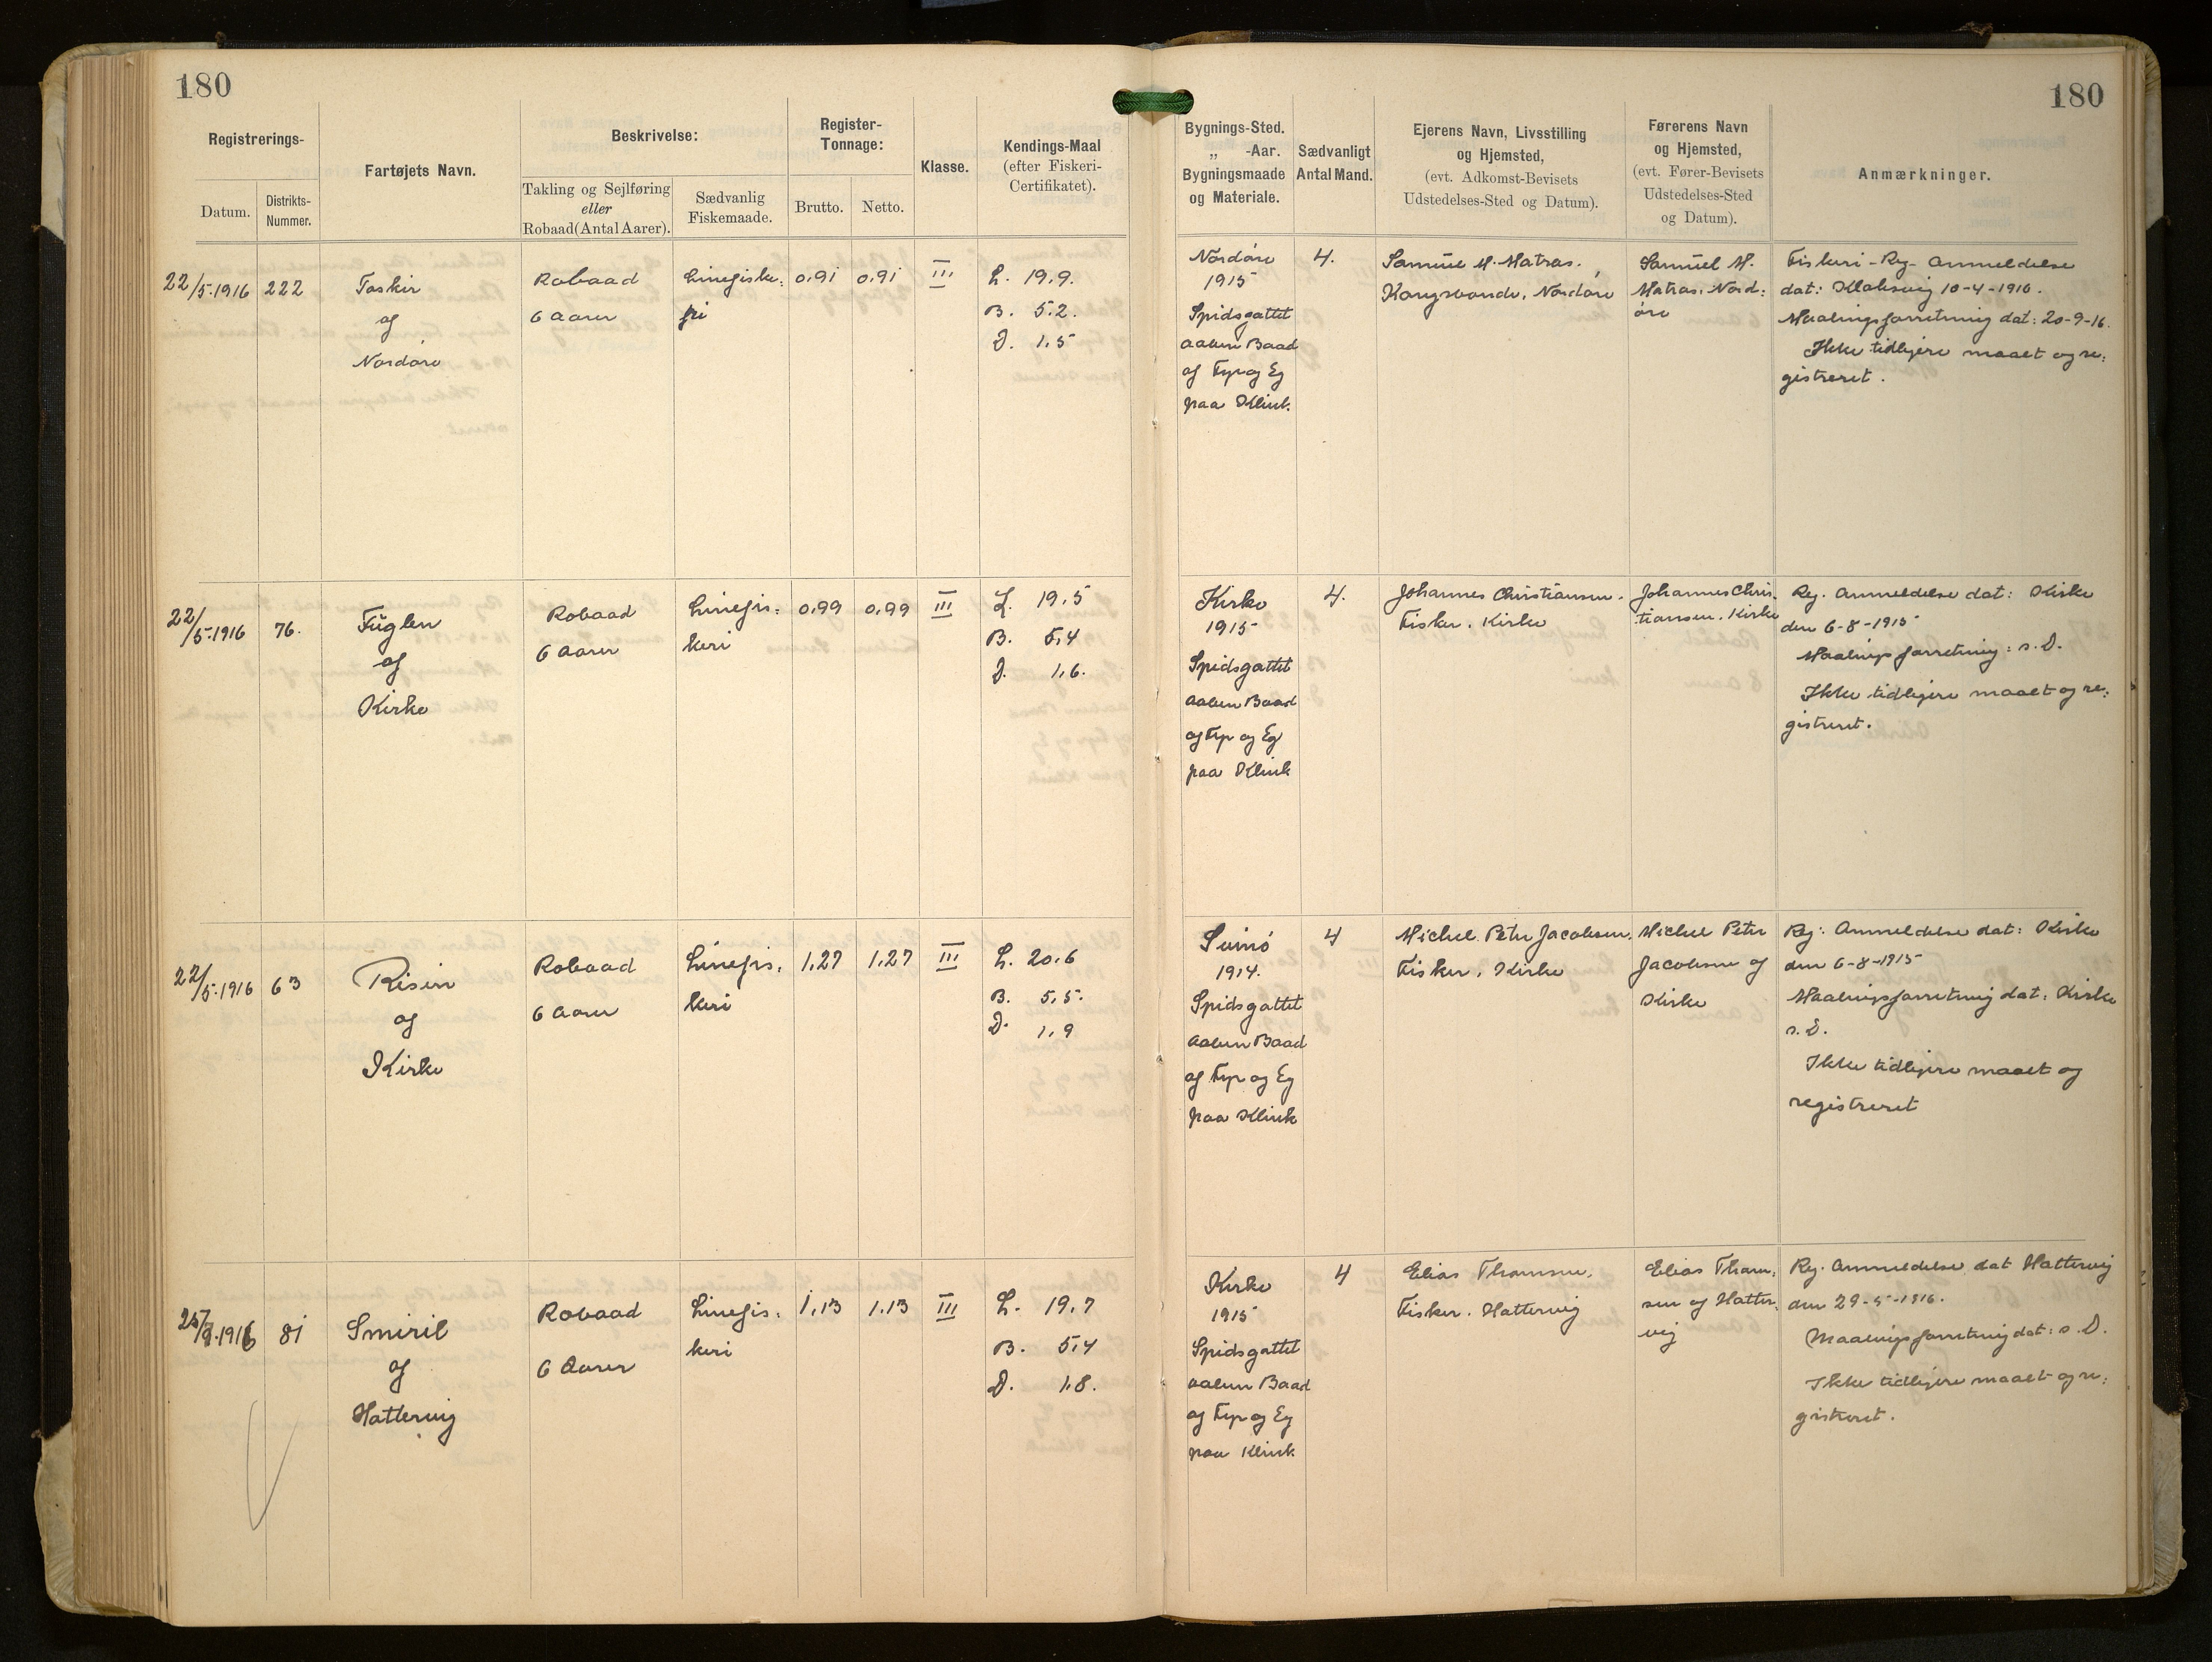 180
180
Registrerings-
Datum.
Distrikts-
Nummer.
Fartøjets Navn.
Beskrivelse:
Takling og Sejlføring
eller
Robaad (Antal Aarer).
Sædvanlig
Fiskemaade.
Register-
Tonnage:
Brutto.
Netto.
Klasse.
Kendings-Maal
(efter Fiskeri-
Certifikatet).
Bygnings-Sted.
„ -Aar.
Bygningsmaade
og Materiale.
Sædvanligt
Antal Mand.
Ejerens Navn, Livsstilling
og Hjemsted,
(evt. Adkomst-Bevisets
Udstedelses-Sted og Datum).
Førerens Navn
og Hjemsted,
(evt. Fører-Bevisets
Udstedelses-Sted
og Datum).
Anmærkninger.
22/5.1916
222
Taskin
af
Nordøre
Robaad
6 Aarer
Linefiske:
ri
0,91
0,91
III
L. 19.9.
B. 5.2.
D. 1.5
Nordøre
1915
Spidsgattet
aaben Baad
af Fyr og Eg
paa Klink.
4.
Samúel M. Matras.
Kongsbonde, Nordøre
Samúel M.
Matras, Nord:
øre
Fiskeri-Reg- Anmeldelse
dat: Klaksvig 10-4-1916.
Maalingsforretning dat: 20-9-16.
Ikke tidligere maalt og re:
gistreret.
22/5.1916
76.
Fuglen
af
Kirke
Robaad
6 Aarer
Linefis:
keri
0,99
0,99
III
L. 19.5
B. 5,4
D. 1,6.
Kirke
1915
Spidsgattet
aaben Baad
af Fyr og Eg
paa Klink
4.
Johannes Christiansen.
Fisker. Kirke
Johannes Chris:
tiansen. Kirke
Reg. Anmeldelse dat: Kirke
den 6-8-1915
Maalingsforretning: s. D.
Ikke tidligere maalt og re:
gistreret.
22/5.1916
63
Risin
af
Kirke
Robaad
6 Aarer
Linefis:
keri
1,27
1,27
III
L. 20.6
B. 5,5.
D. 1,9
Svinø
1914.
Spidsgattet
aaben Baad
af Fyr og Eg
paa Klink
4
Michel Peter Jacobsen.
Fisker, Kirke
Michel Peter
Jacobsen af
Kirke
Reg: Anmeldelse dat: Kirke
den 6-8-1915
Maalingsforretning dat: Kirke
s. D.
Ikke tidligere maalt og
registreret
1916
81
Smiril
af
Hattervig
Robaad
6 Aarer
Linefis:
keri
1,13
1,13
III
L. 19,7
B. 5,4
D. 1.8.
Kirke
1915
Spidsgattet
aaben Baad
af Fyr og Eg
paa Klink
4
Elias Thomsen.
Fisker. Hattervig
Elias Thom:
sen af Hatter:
vig
Reg. Anmeldelse dat Hattervig
den 29-5-1916.
Maalingsforretning dat: s. D.
Ikke tidligere maalt og re:
gistreret.